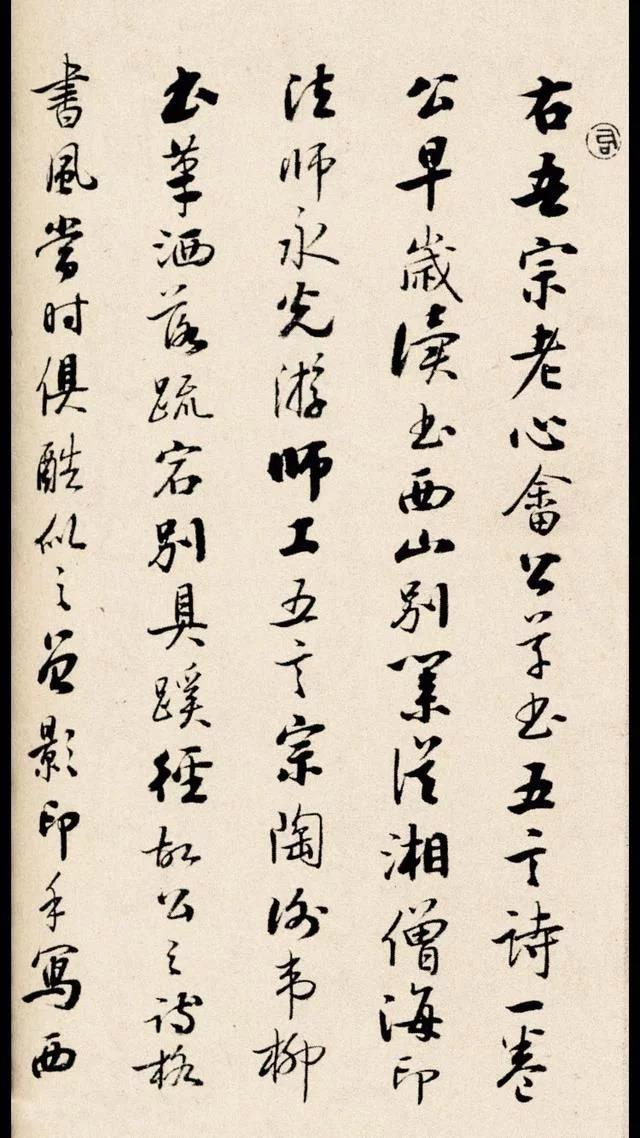 右吾宗老心畬公草书五言诗一卷
公早歲讀书西山別業從湘僧海印
法师永光游师工五言宗陶谢韦柳
书筆洒落疏宕別具蹊径故公之詩格
書風當时俱酷似之曾影印手寫西